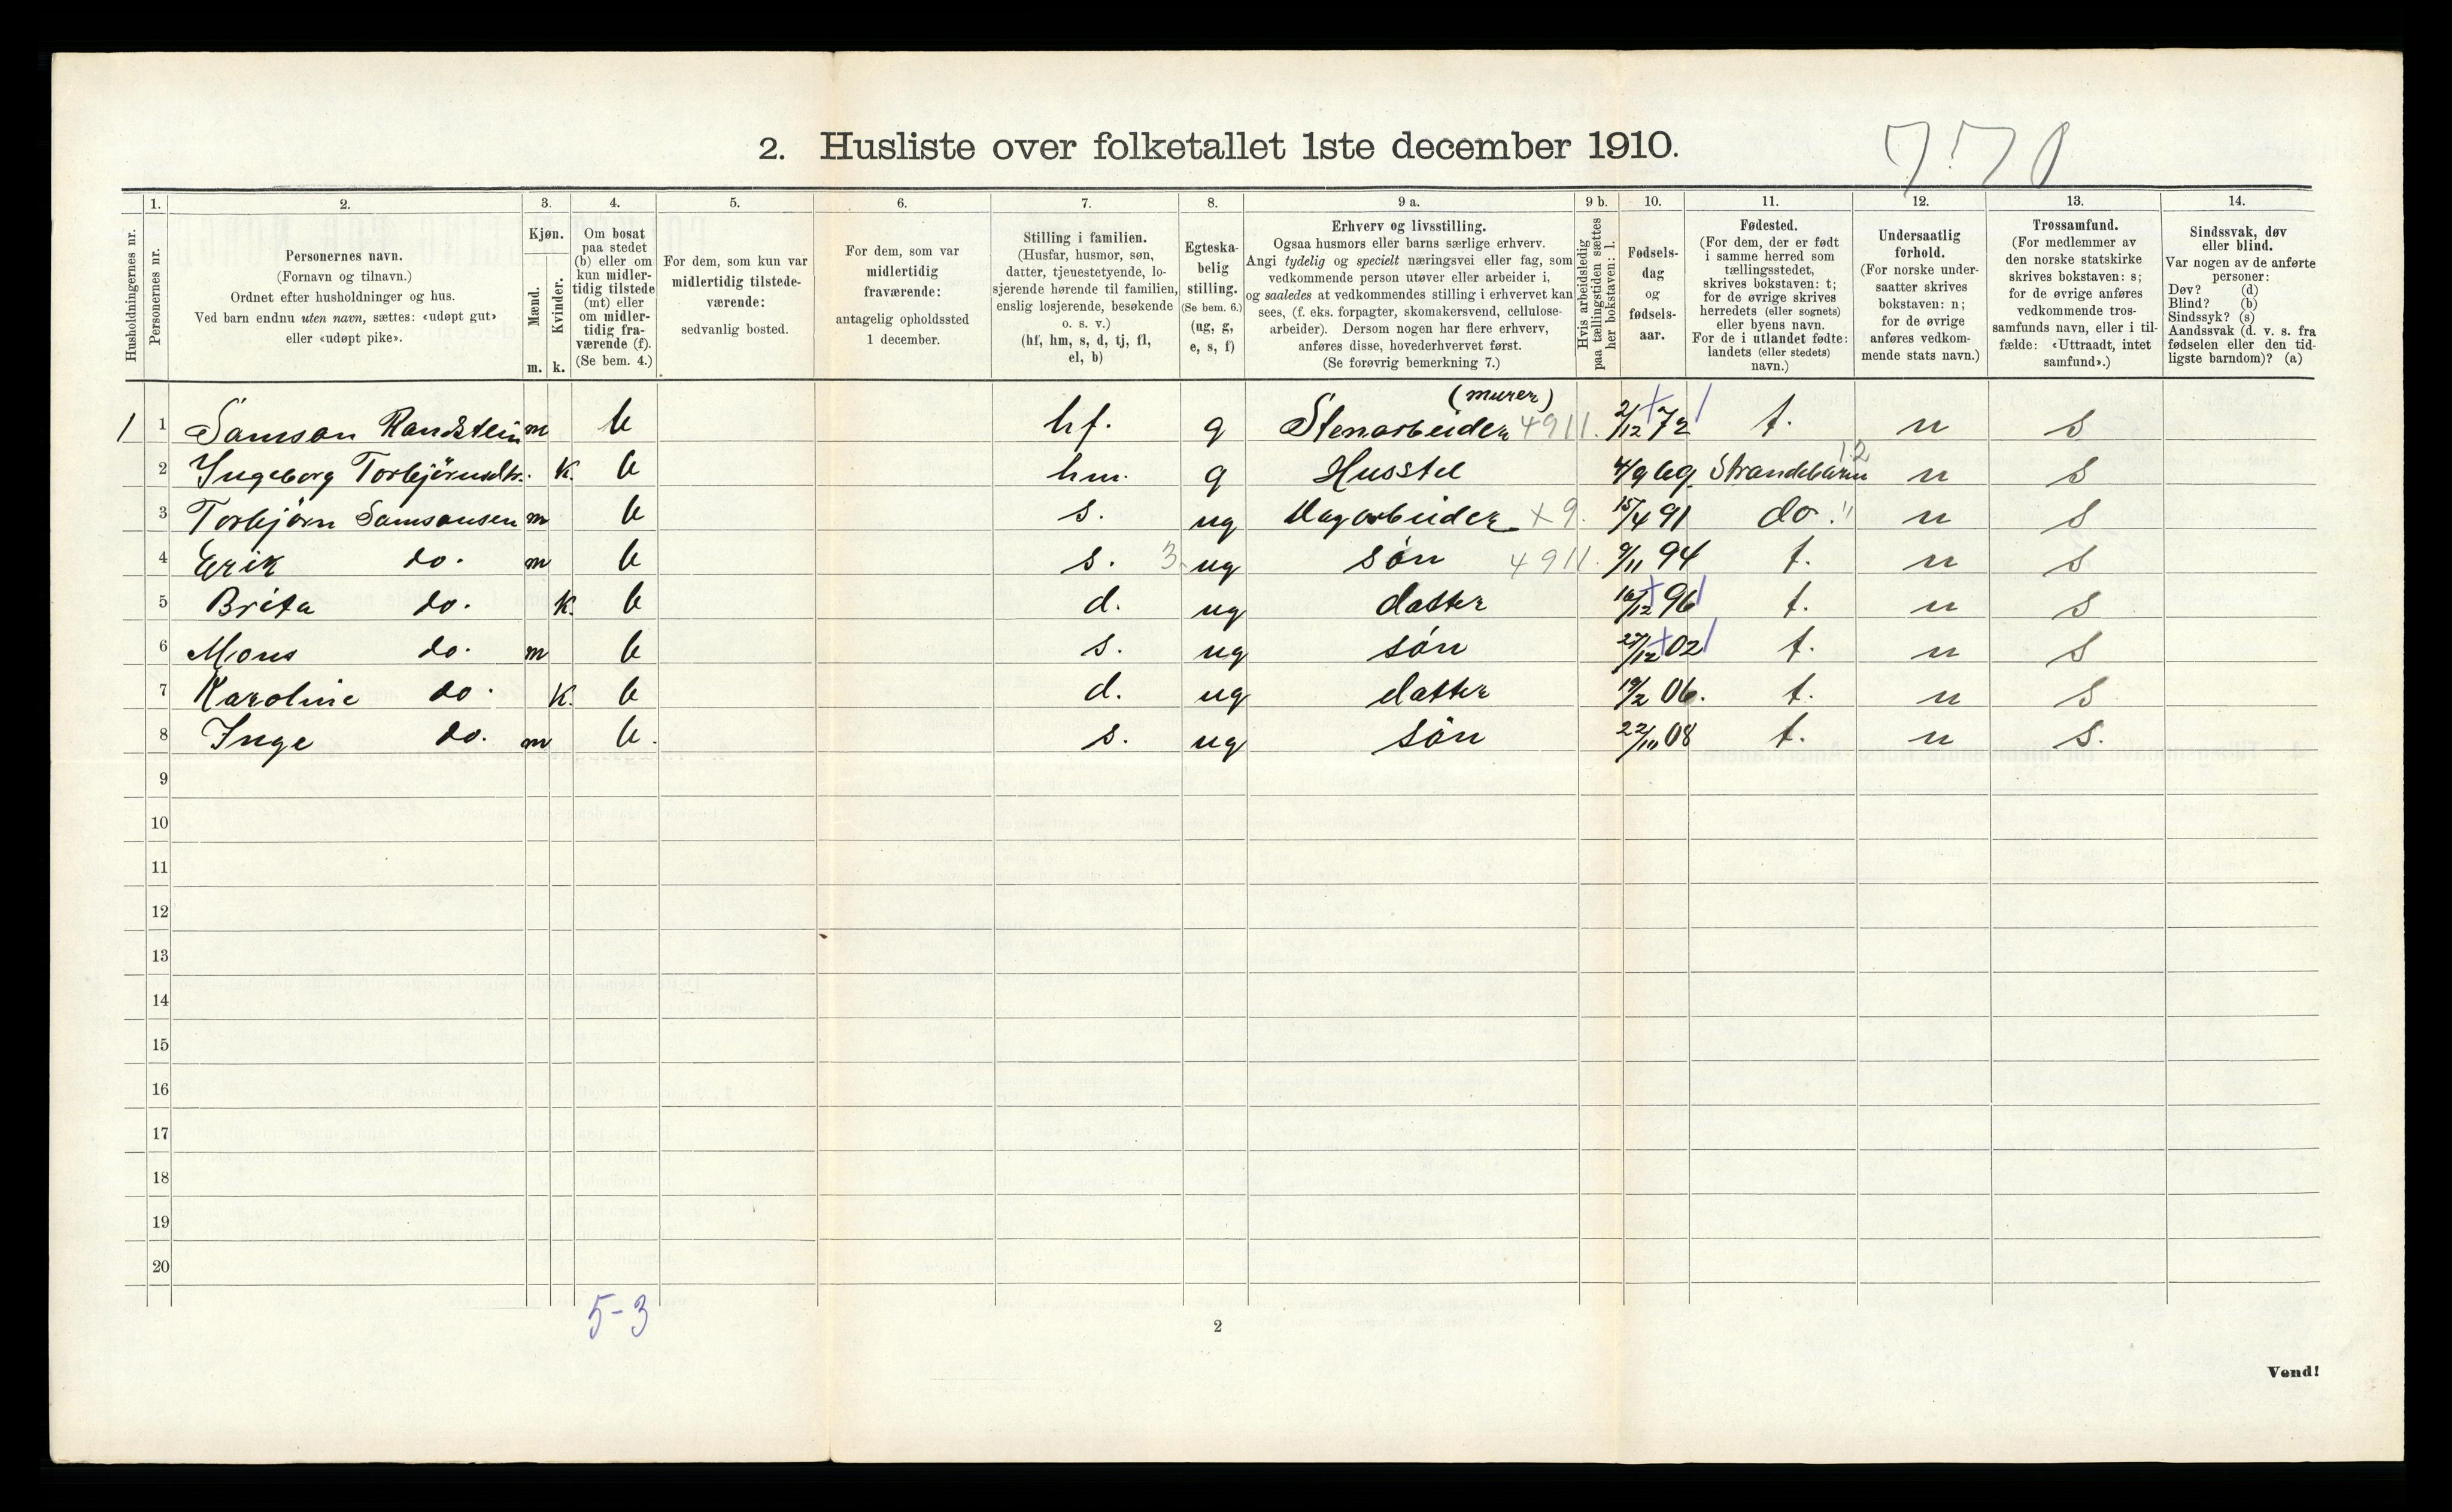 2. Husliste over folketallet 1ste december 1910.
770
1. 2. 3. 4. 5. 6. 7. 8. 9 a. 9 b. 10. 11. 12. 13. 14.
Husholdningernes nr.
Personernes nr.
Personernes navn.
(Fornavn og tilnavn.)
Ordnet efter husholdninger og hus.
Ved barn endnu uten navn, sættes: «udøpt gut»
eller «udøpt pike».
Kjøn.
Mænd.
Kvinder.
m. k.
Om bosat
paa stedet
(b) eller om
kun midler-
tidig tilstede
(mt) eller
om midler-
tidig fra-
værende (f).
(Se bem. 4.)
For dem, som kun var
midlertidig tilstede-
værende:
sedvanlig bosted.
For dem, som var
midlertidig
fraværende:
antagelig opholdssted
1 december.
Stilling i familien.
(Husfar, husmor, søn,
datter, tjenestetyende, lo-
sjerende hørende til familien,
enslig losjerende, besøkende
o. s. v.)
(hf, hm, s, d, tj, fl,
el, b)
Egteska-
belig
stilling.
(Se bem. 6.)
(ug, g,
e, s, f)
Erhverv og livsstilling.
Ogsaa husmors eller barns særlige erhverv.
Angi tydelig og specielt næringsvei eller fag, som
vedkommende person utøver eller arbeider i,
og saaledes at vedkommendes stilling i erhvervet kan
sees, (f. eks. forpagter, skomakersvend, cellulose-
arbeider). Dersom nogen har flere erhverv,
anføres disse, hovederhvervet først.
(Se forøvrig bemerkning 7.)
Hvis arbeidsledig
paa tællingstiden sættes
her bokstaven: l.
Fødsels-
dag
og
fødsels-
aar.
Fødested.
(For dem, der er født
i samme herred som
tællingsstedet,
skrives bokstaven: t;
for de øvrige skrives
herredets (eller sognets)
eller byens navn.
For de i utlandet fødte:
landets (eller stedets)
navn.)
Undersaatlig
forhold.
(For norske under-
saatter skrives
bokstaven: n;
for de øvrige
anføres vedkom-
mende stats navn.)
Trossamfund.
(For medlemmer av
den norske statskirke
skrives bokstaven: s;
for de øvrige anføres
vedkommende tros-
samfunds navn, eller i til-
fælde: «Uttraadt, intet
samfund».)
Sindssvak, døv
eller blind.
Var nogen av de anførte
personer:
Døv? (d)
Blind? (b)
Sindssyk? (s)
Aandssvak (d. v. s. fra
fødselen eller den tid-
ligste barndom)? (a)
1 1 Samson Randstein m b hf. g Stenarbeider (murer) 4911. 2/12 72 t. n s
2 Ingeborg Torbjörnsdtr. k. b hm. g Husstel 4/9 69 Strandebarm 12 n s
3 Torbjörn Samsonsen m b s. ug Dagarbeider x 9. 15/4 91 do. " n s
4 Erik do. m b s. 3 ug sön 4911. 9/11 94 t. n s
5 Brita do. k. b d. ug datter 16/12 96 t. n s
6 Mons do. m b s. ug sön 27/12 02 t. n s
7 Karoline do. k. b d. ug datter 19/2 06. t. n s
8 Inge do. m b. s. ug sön 22/10 08 t. n s.
9
10
11
12
13
14
15
16
17
18
19
20
5-3
2
Vend!